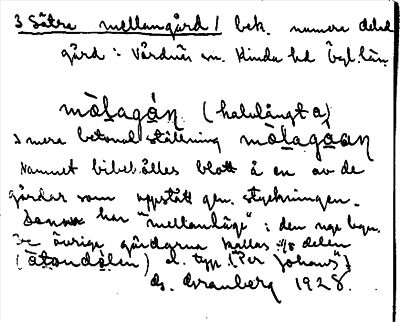 3 Sätra mellangård / bek. numera delad
gård i Vårdnäs sn. Kinda hd Ögl. län
mòlagán (halvlångt a)
I mera betonad ställning mòlagáan
Namnet bibehålles blott å en av de
gårdar som uppstått gen. styckningen.
Denna har "mellanläge" i den nya byn.
De övriga gårdarna kallas
(àtondèlen) el. typ. ("Per Johans")
ds. Granberg 1928.